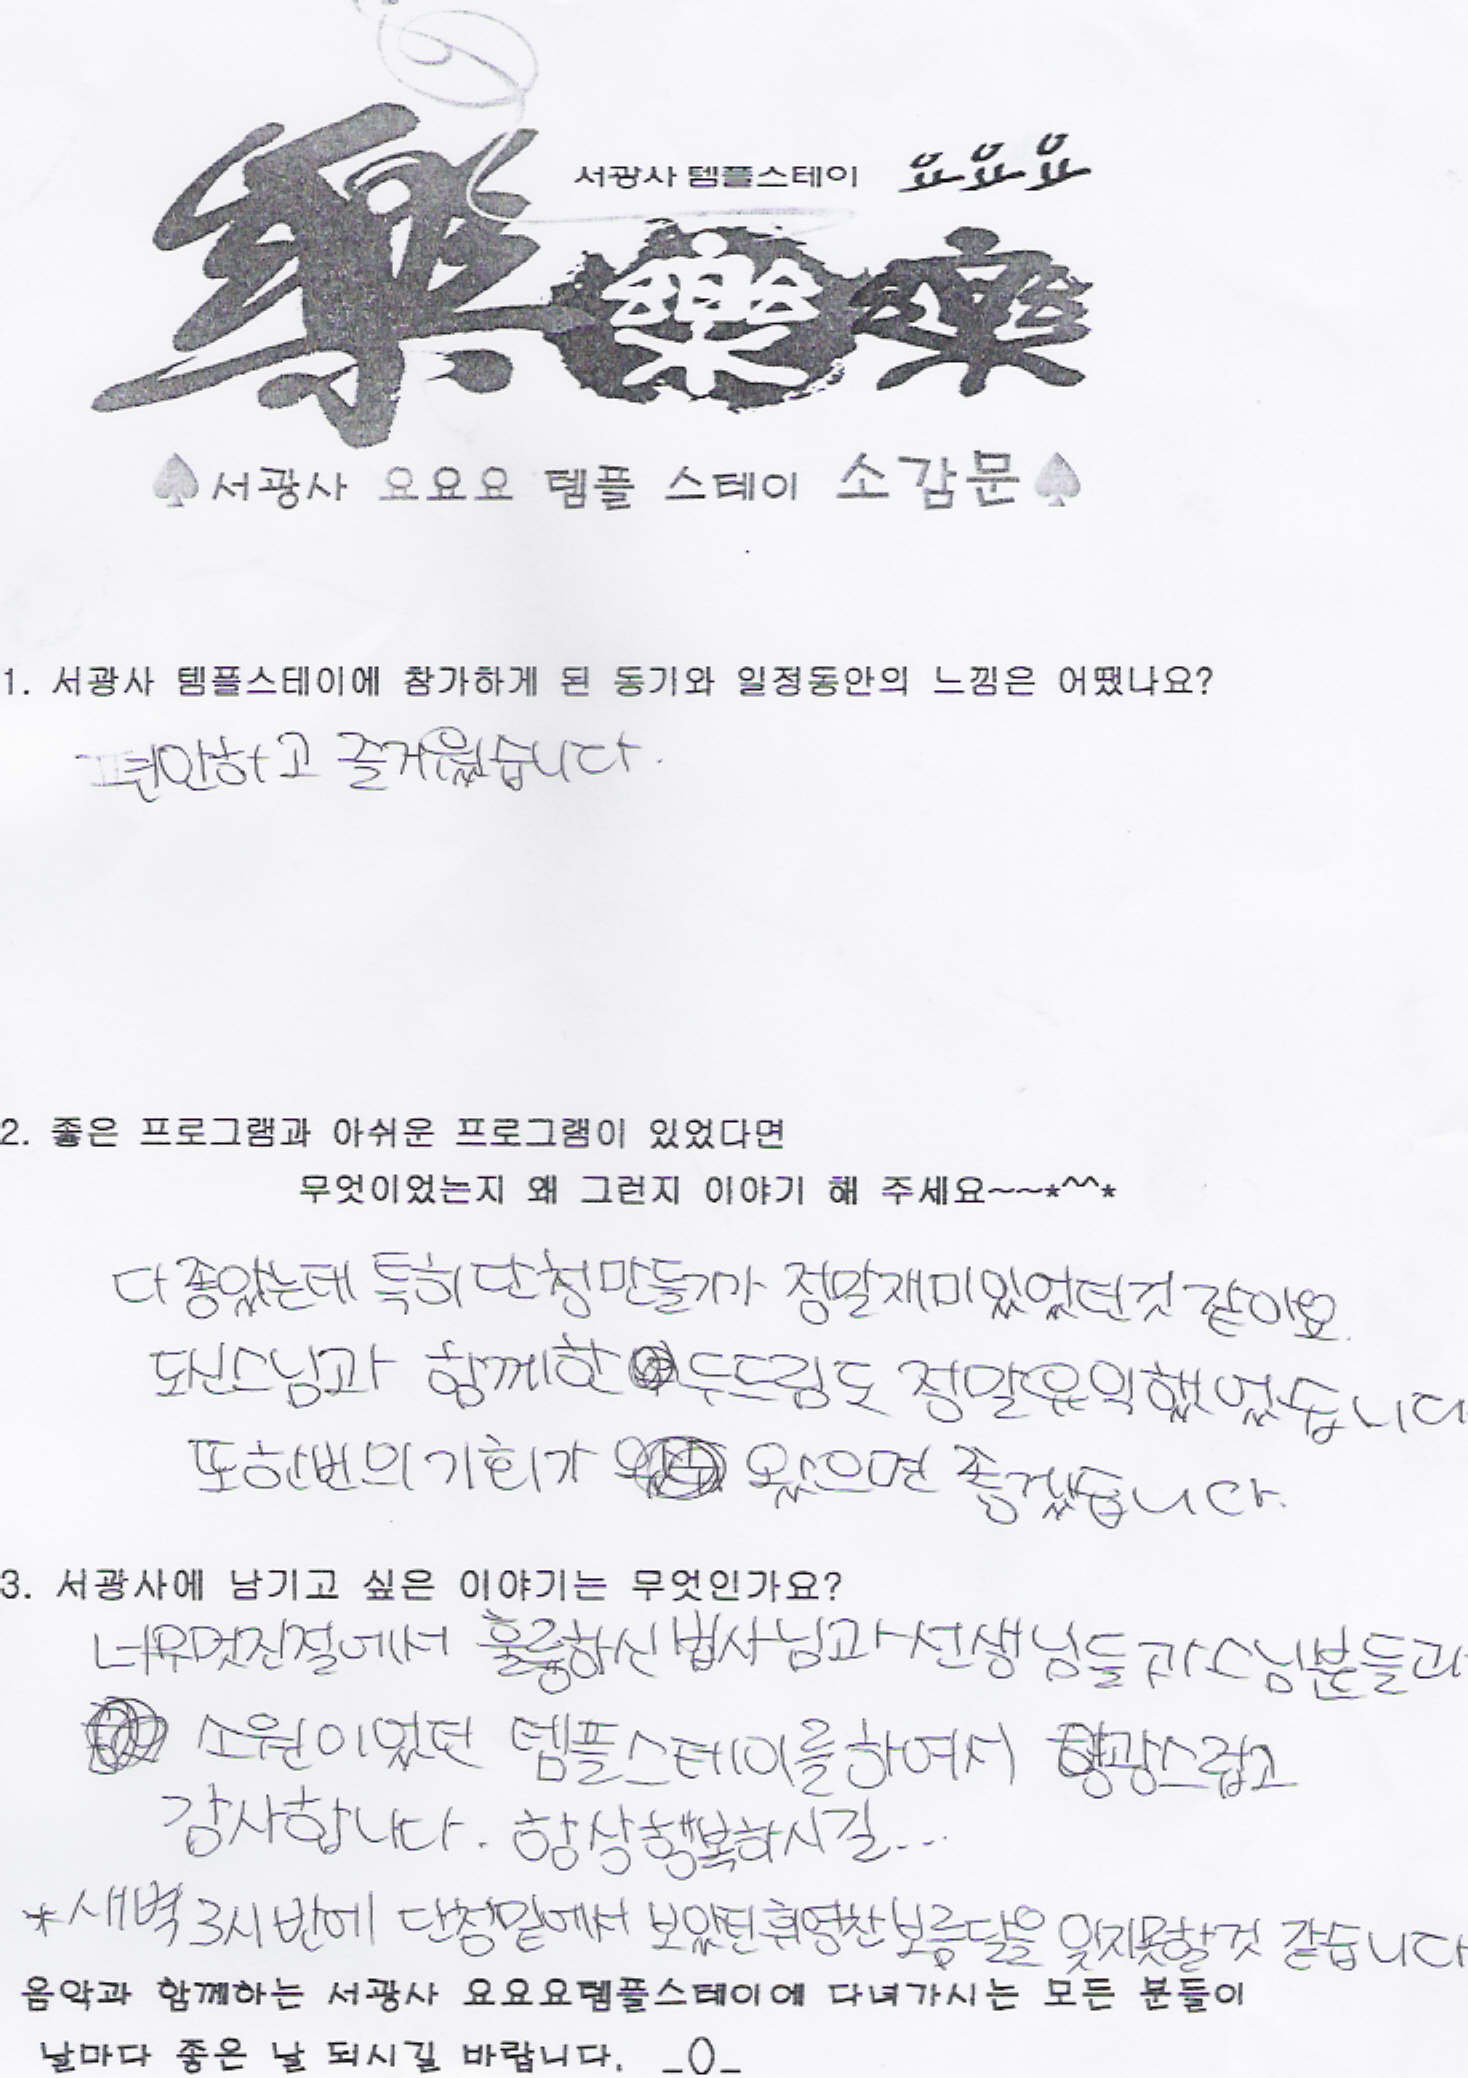 서광사 템플스테이 요요요
樂 樂 樂
서광사 요요요 템플 스테이 소감문
1. 서광사 템플스테이에 참가하게 된 동기와 일정동안의 느낌은 어땠나요?
편안하고 즐거웠습니다.
2. 좋은 프로그램과 아쉬운 프로그램이 있었다면
무엇이었는지 왜 그런지 이야기 해 주세요~~*^^*
다 좋았는데 특히 단청만들기가 정말재미있었던것 같아요.
도신스님과 함께한 두드림도 정말유익했었습니다
또한번의 기회가 왔으면 좋겠습니다.
3. 서광사에 남기고 싶은 이야기는 무엇인가요?
너무멋진절에서 훌륭하신 법사님과 선생님들과 스님분들과
소원이었던 템플스테이를하여서 영광스럽고
감사합니다. 항상행복하시길...
*새벽 3시 반에 단청밑에서 보았던휘영찬보름달을 잊지못할것 같습니다
음악과 함께하는 서광사 요요요템플스테이에 다녀가시는 모든 분들이
날마다 좋은 날 되시길 바랍니다. _O_